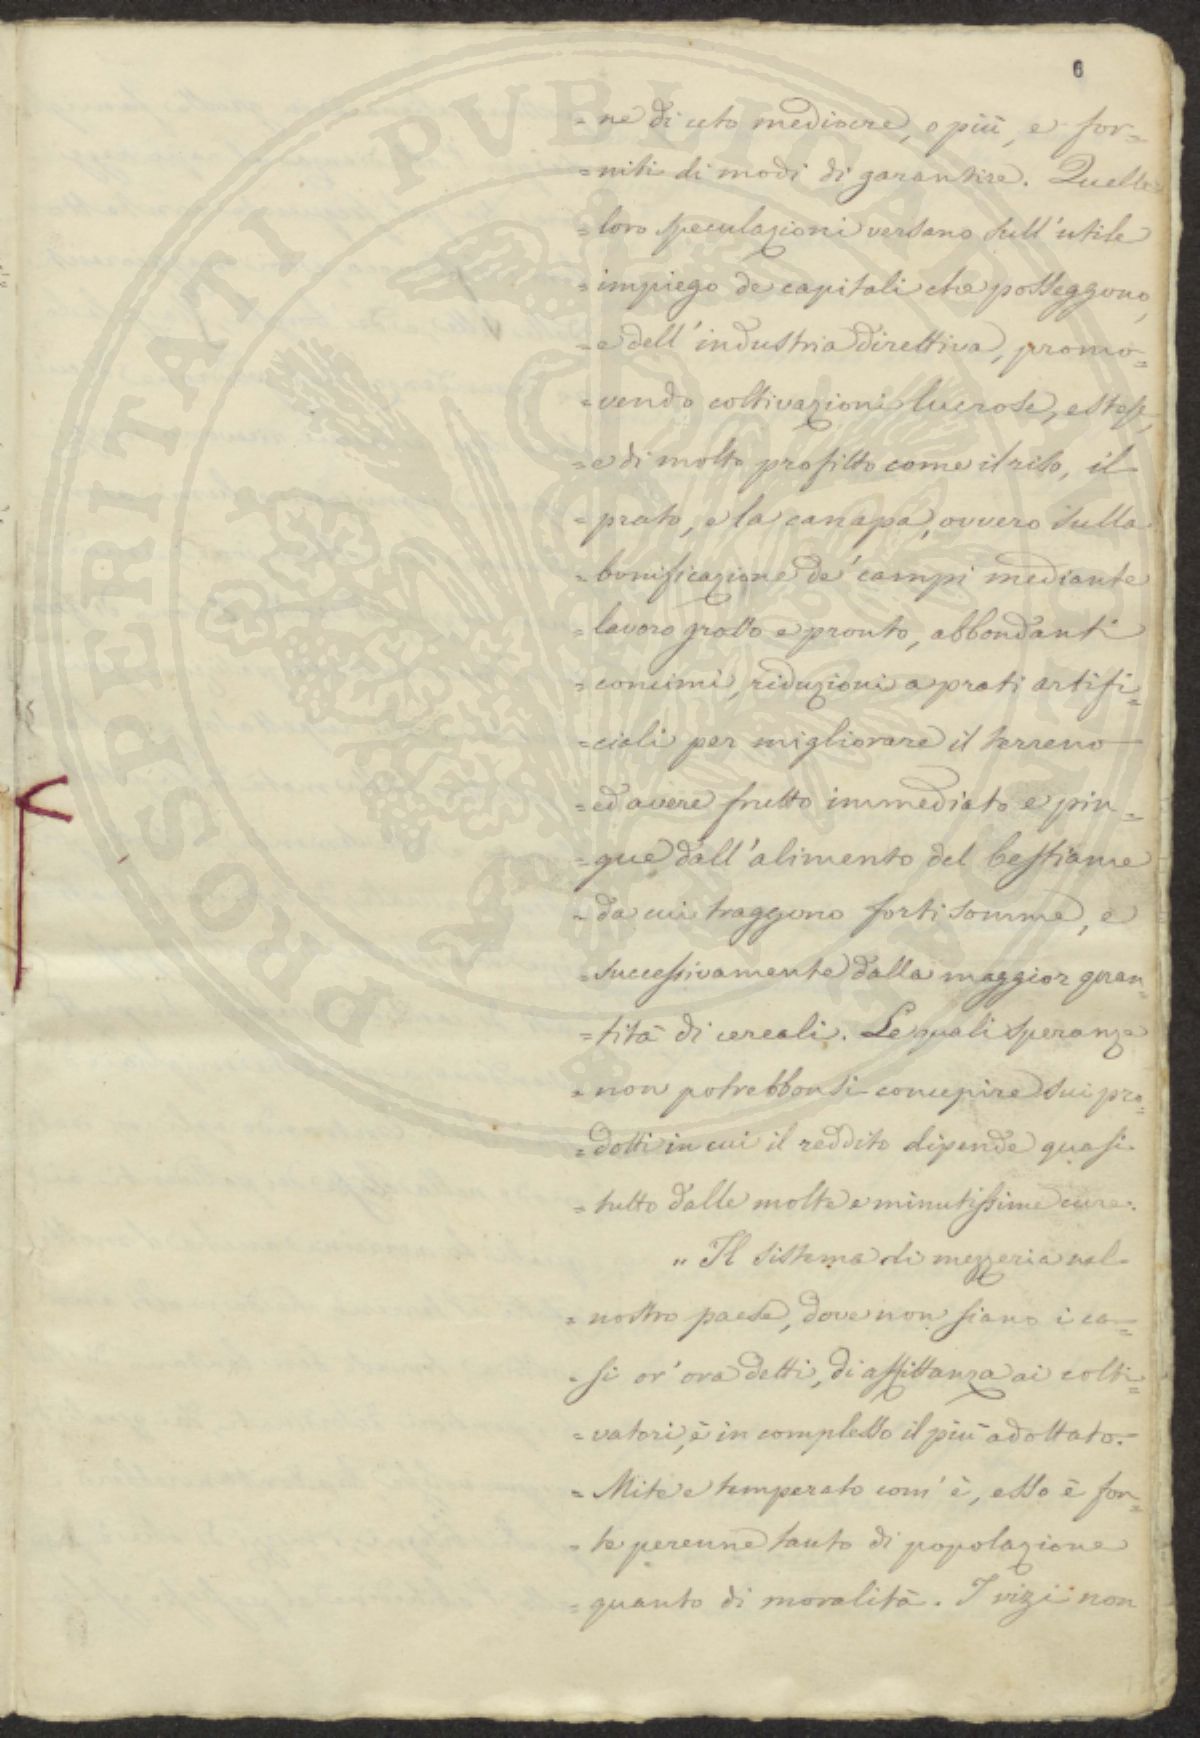 6
= ne di ceto mediocre, o più, e for=
= niti di modi di garantire. Quelle
= loro speculazioni versano sull'utile
= impiego de capitali che posseggono,
= e dell'industria direttiva, promo=
= vendo coltivazioni lucrose, estese,
= e di molto profitto come il riso, il
= prato, e la canapa, ovvero sulla
= bonificazione de' campi mediante
= lavoro grosso e pronto, abbondanti
= concimi, riduzioni a prati artifi=
= ciali per migliorare il terreno
= ed avere frutto immediato e pin=
= gue dall'alimento del bestiame
= da cui traggono forti somme, e
= successivamente dalla maggior quan=
= tità di cereali. Le quali speranze
= non potrebbonsi concepire sui pro=
= dotti in cui il reddito dipende quasi
= tutto dalle molte e minutissime cure.
" Il sistema di mezzeria nel
= nostro paese, dove non siano i ca=
= si or' ora detti, di affittanza ai colti=
= vatori, è in complesso il più adottato.
= Mite e temperato com' è, esso è fon=
= te perenne tanto di popolazione
= quanto di moralità. I vizi non
PROSPERITATI PVBLICAE